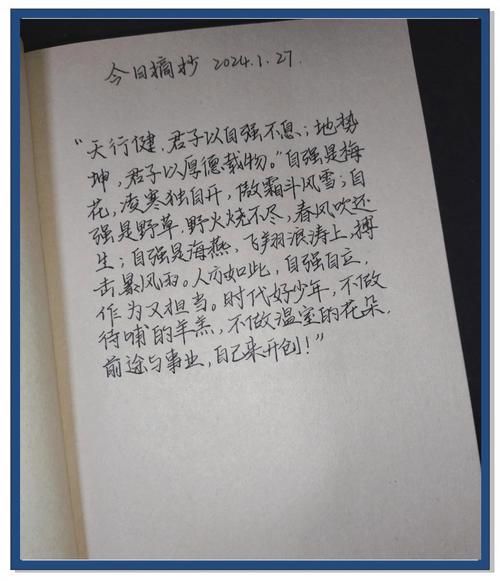 今日摘抄 2024.1.27.
“天行健，君子以自强不息；地势
坤，君子以厚德载物。”自强是梅
花，凌寒独自开，傲霜斗风雪；自
强是野草，野火烧不尽，春风吹还
生；自强是海燕，飞翔浪涛上，搏
击暴风雨。人方如此，自强自立，
作为又担当。时代好少年，不做
待哺的羊羔，不做温室的花朵，
前途与事业，自己来开创！”